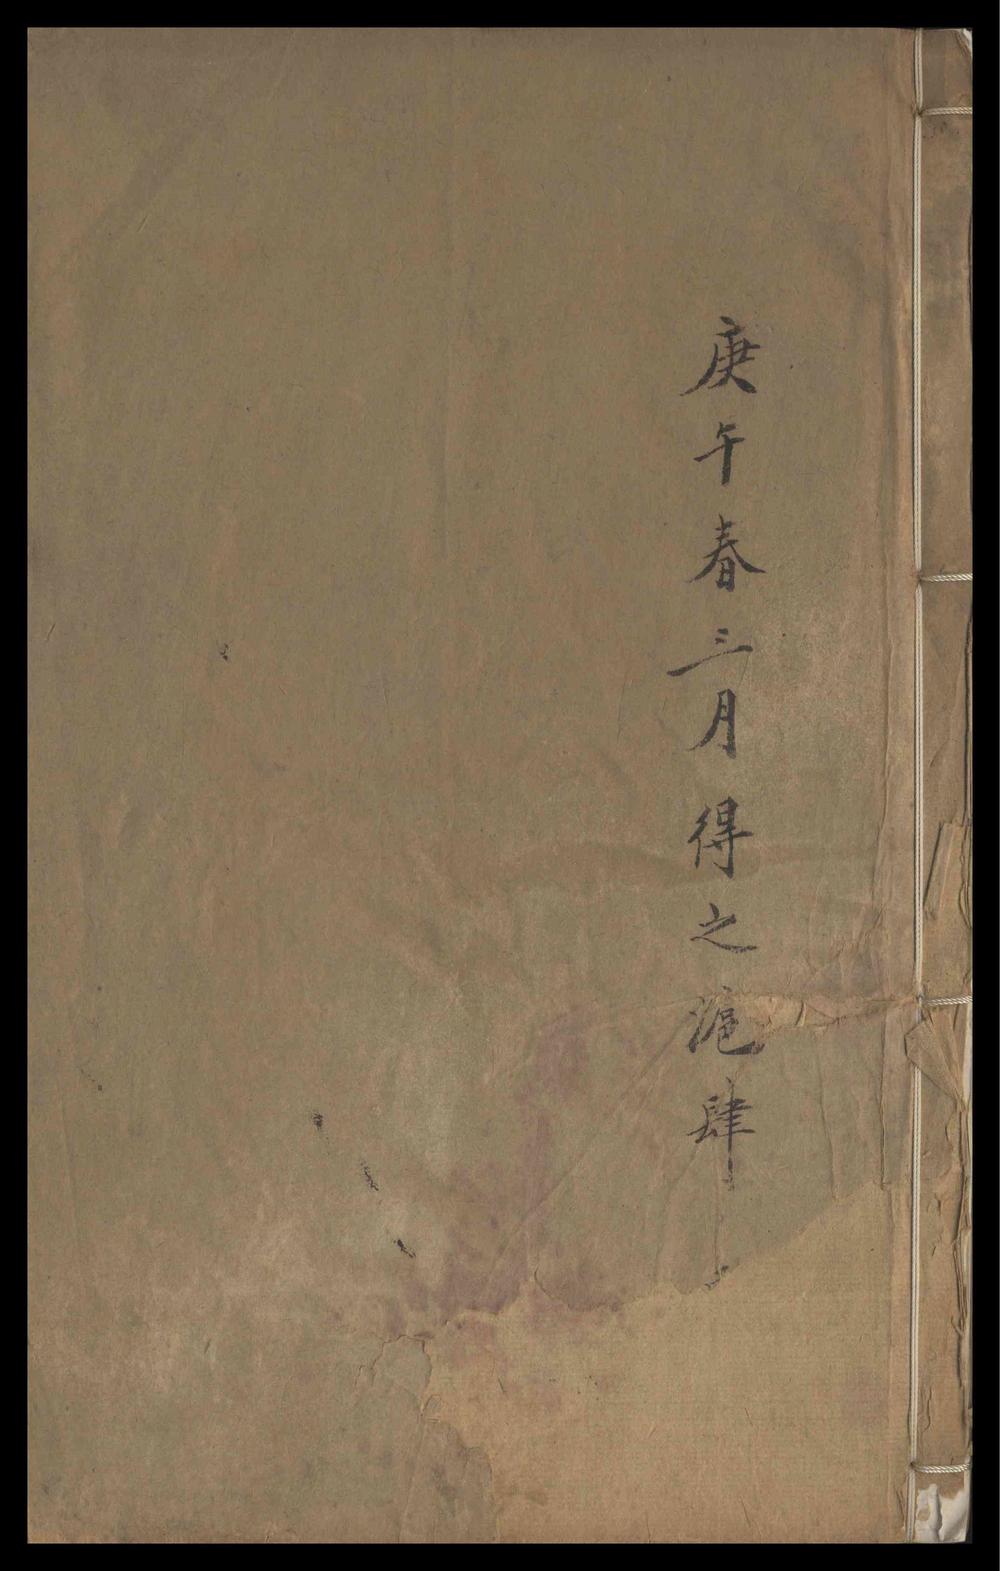 庚午春三月得之滬肆